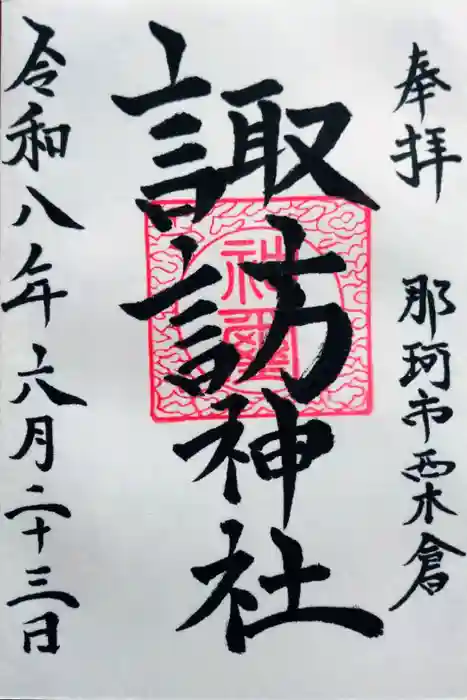 奉拝　那珂市西木倉
諏訪神社
令和八年六月二十三日